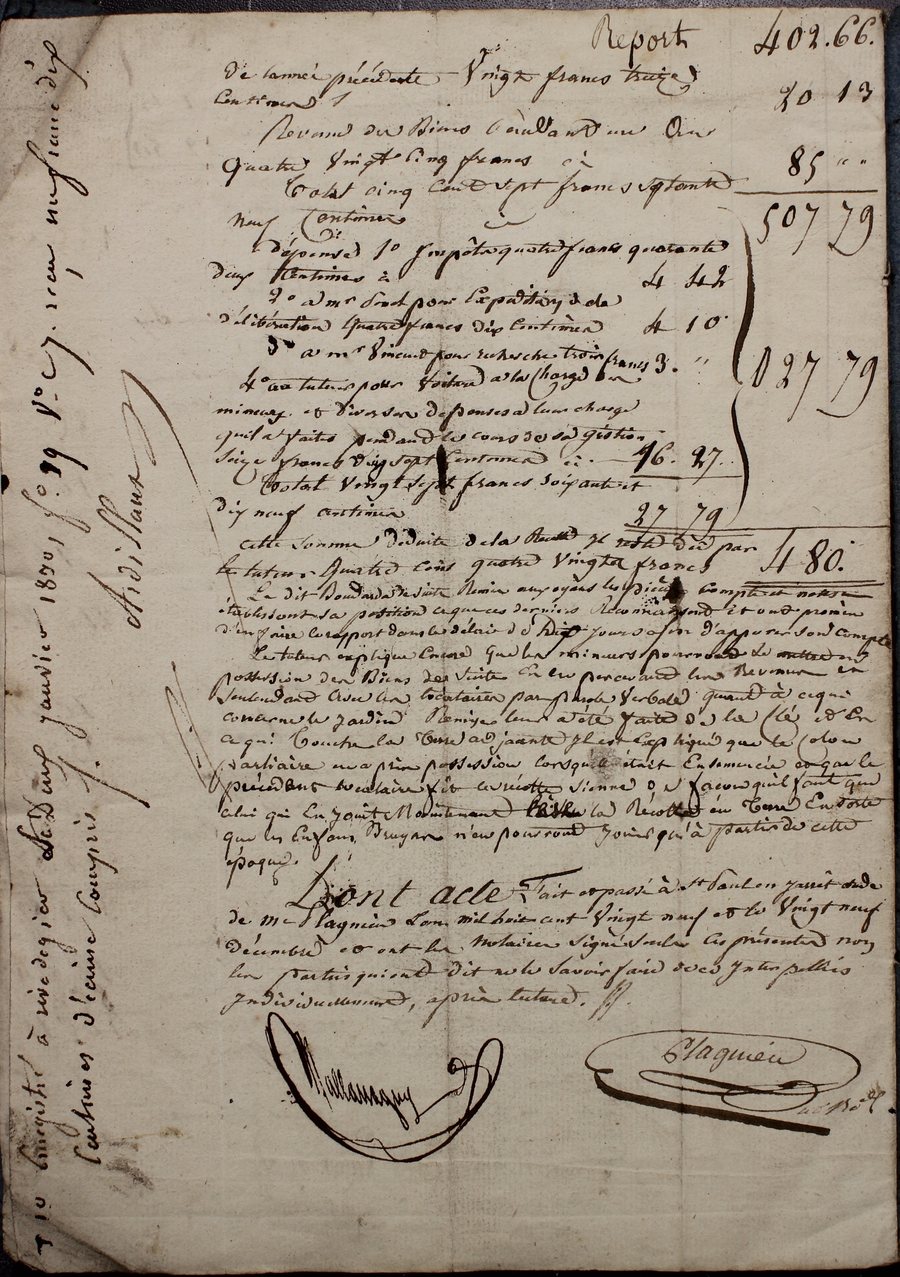 Report 402.66.
de l'année précédente Vingt francs treize
Centimes 20 13
Revenu des Biens
Quatre Vingt Cinq francs ci 85 " "
Total cinq Cent Sept francs Soptante
neuf Centimes ci 507 79
dépense 1o Impôts quatre francs quarante
deux Centimes ci 4 42
2o a mr pour Expédition de
délibération Quatre francs dix Centimes 4 10
3o a mr Vincent pour recherche trois francs 3. "
4o au tuteur pour Voiture a la Charge des
mineurs et diverses depenses a leur charge
qu'il a faites pendant le cours de sa gestion
Seize francs Vingt sept Centimes ci 16. 27.
Total Vingt Sept francs Soixante et
dix neuf Centimes 27 79
027 79
cette Somme déduite de la Recette Il reste dû par
le tuteur Quatre Cens quatre Vingts francs 480.
Le dit de Suite Remis aux oyans les pièces, Compte et notes
établissant sa position ce que ces derniers Reconnaissent Et ont promis
d'en faire le rapport dans le délai de Dix Jours afin d'appurer son Compte
Le tuteur explique Encore que les mineurs pourront Se mettre en
possession des Biens de Suite En en percevant les Revenus en
Sentendant Avec les locataires par parole Verbale quant à ce qui
concerne le Jardin Remise leur a été faite de la Clé et En
ce qui Touche la Terre adjacente Il est Expliqué que le Colon
partiaire en a pris possession lorsqu'elle était Ensemencée et que le
précédent locataire fit la récolte Sienne de façon qu'il faut que
celui qui En Jouit Maintenant la Récolte en Terre En Sorte
que les Enfans Bruyas n'en pourront Jouir qu'à partir de cette
époque.
Dont acte. Fait et passé à St Paul en Jarrêt étude
de Me Plagnieu L'an mil huit cent Vingt neuf et le Vingt neuf
décembre et ont les Notaires Signé Seuls ces présentes non
les parties qui ont dit ne le Savoir faire de ce Interpellés
Individuellement, après lecture.
Plagnieu
Enregistré à rivedegier Le Deux Janvier 1830, fo. 99 Vo. C 7. reçu un franc dix
Centimes décime Compris.